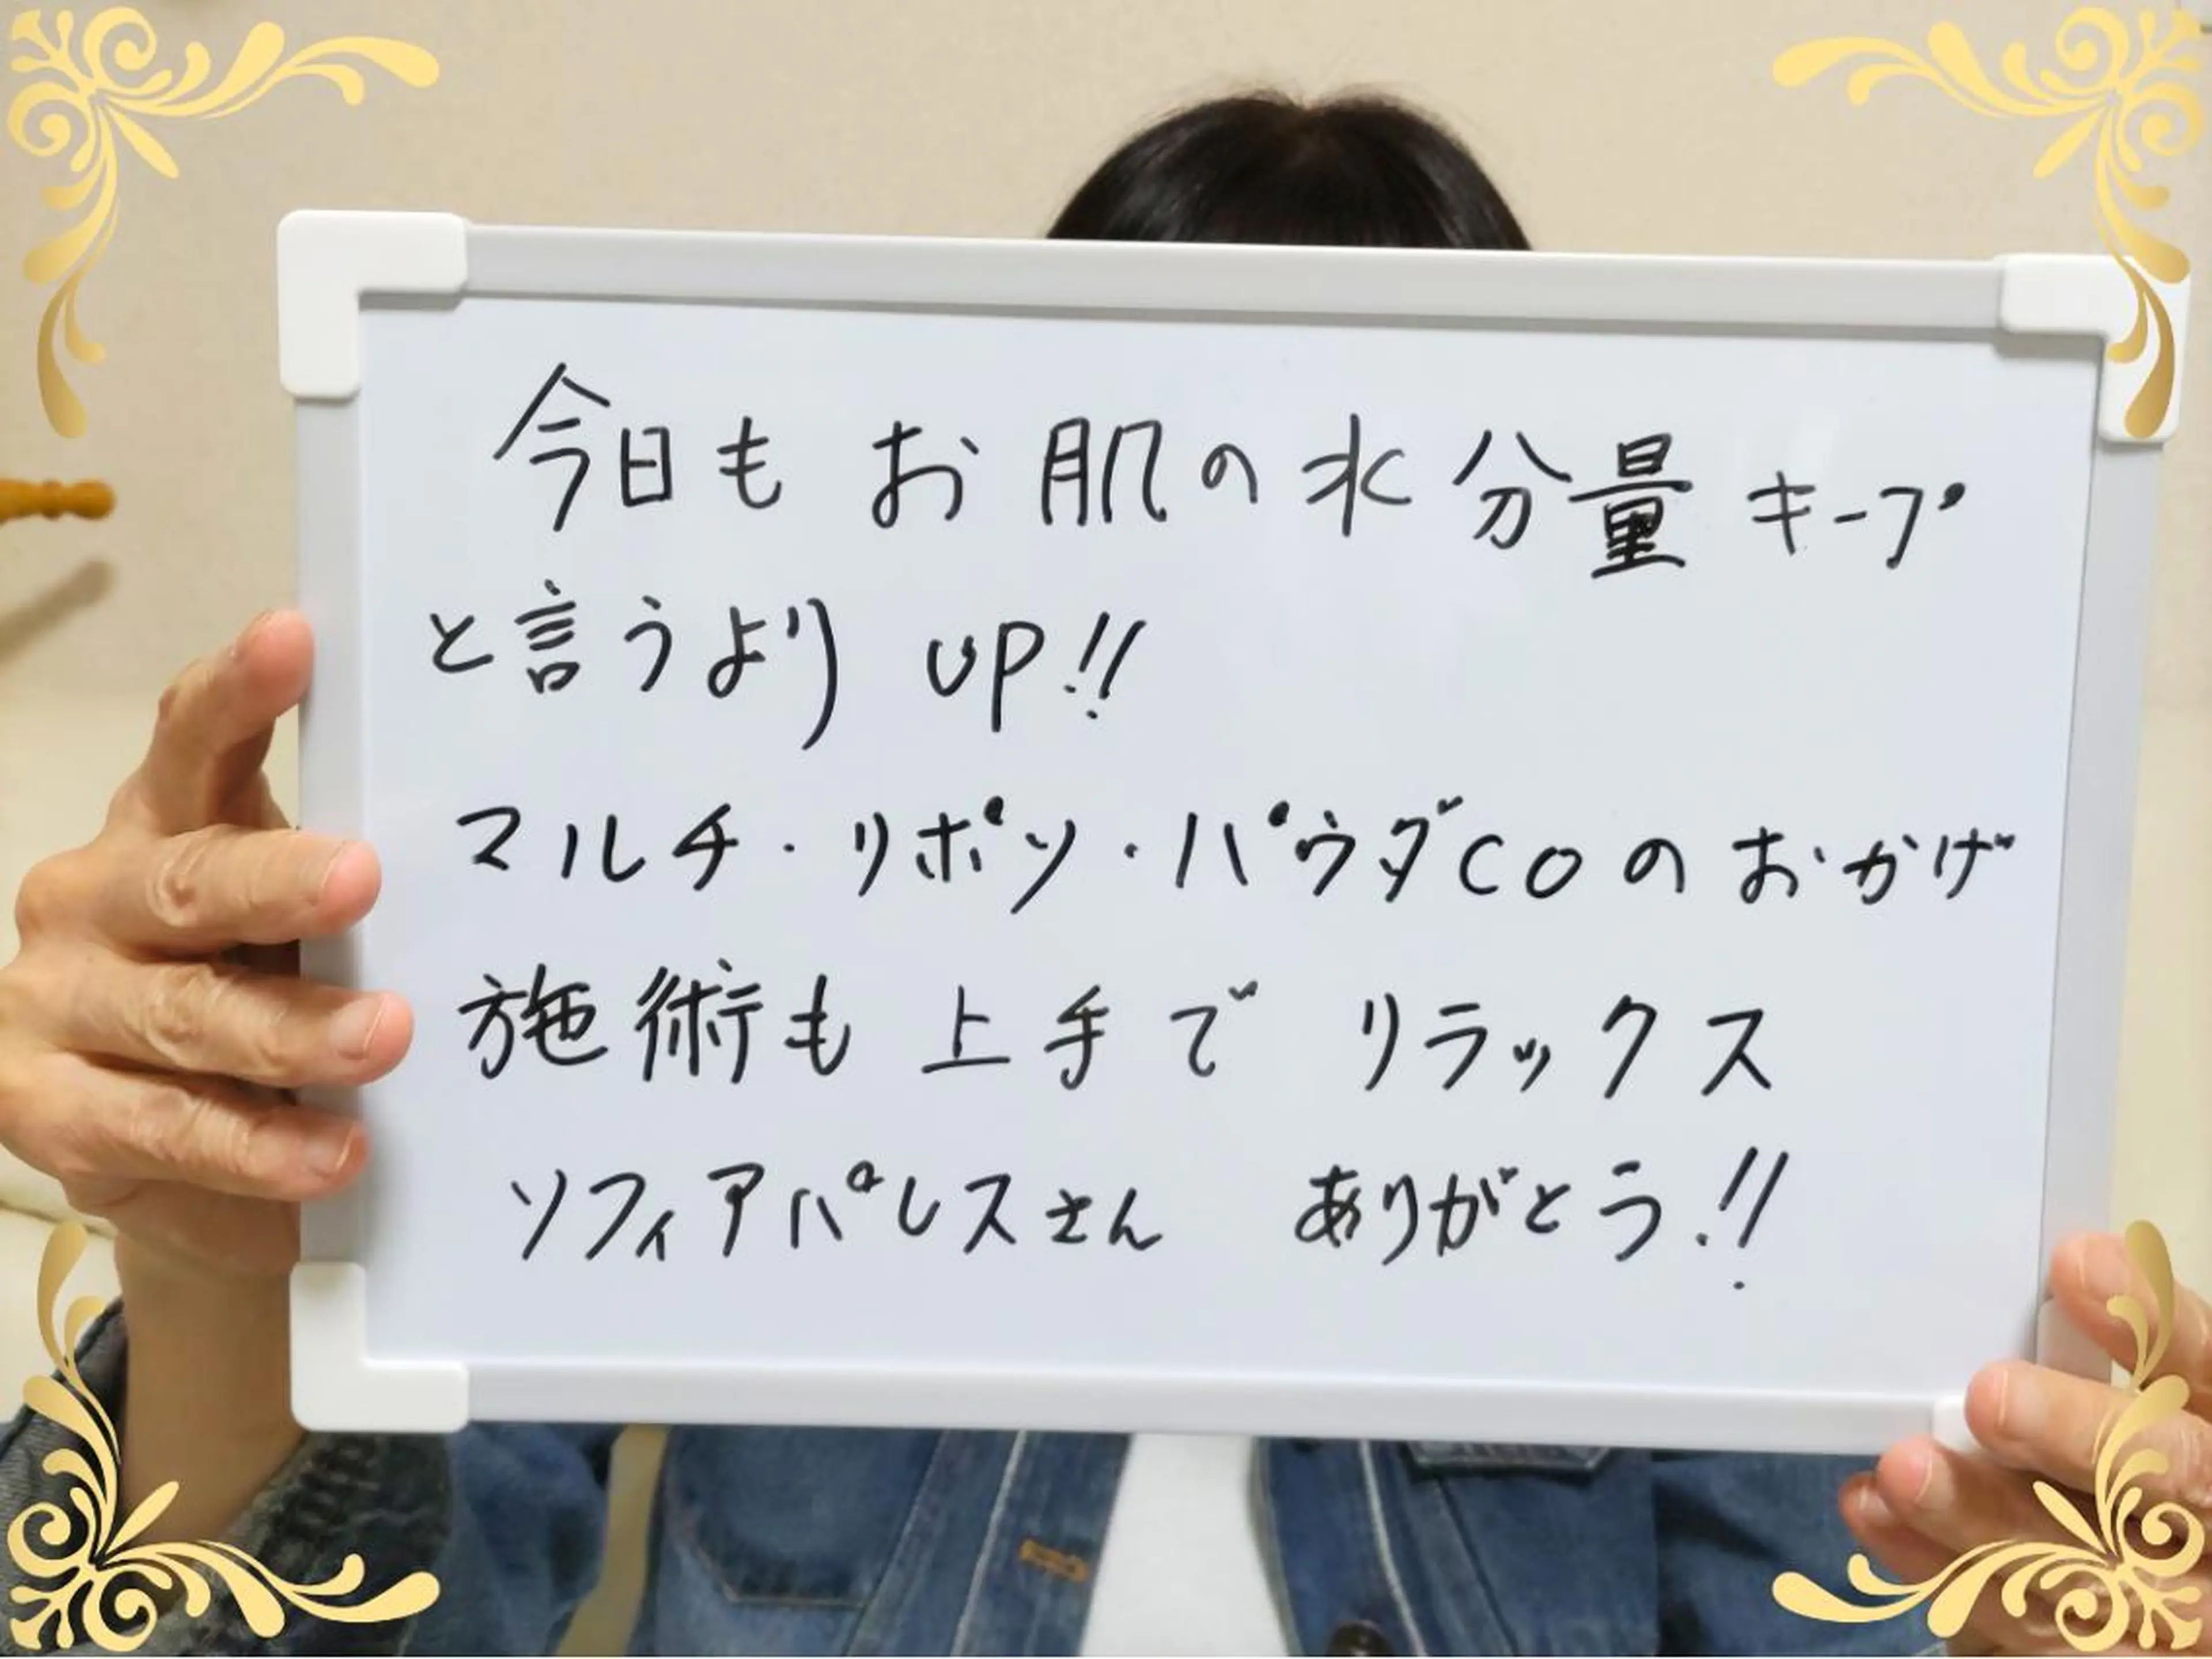 今日もお肌の水分量キープ
と言うより UP!!
マルチ・リポソ・パウダCOのおかげ
施術も上手で リラックス
ソフィアパレスさん ありがとう!!